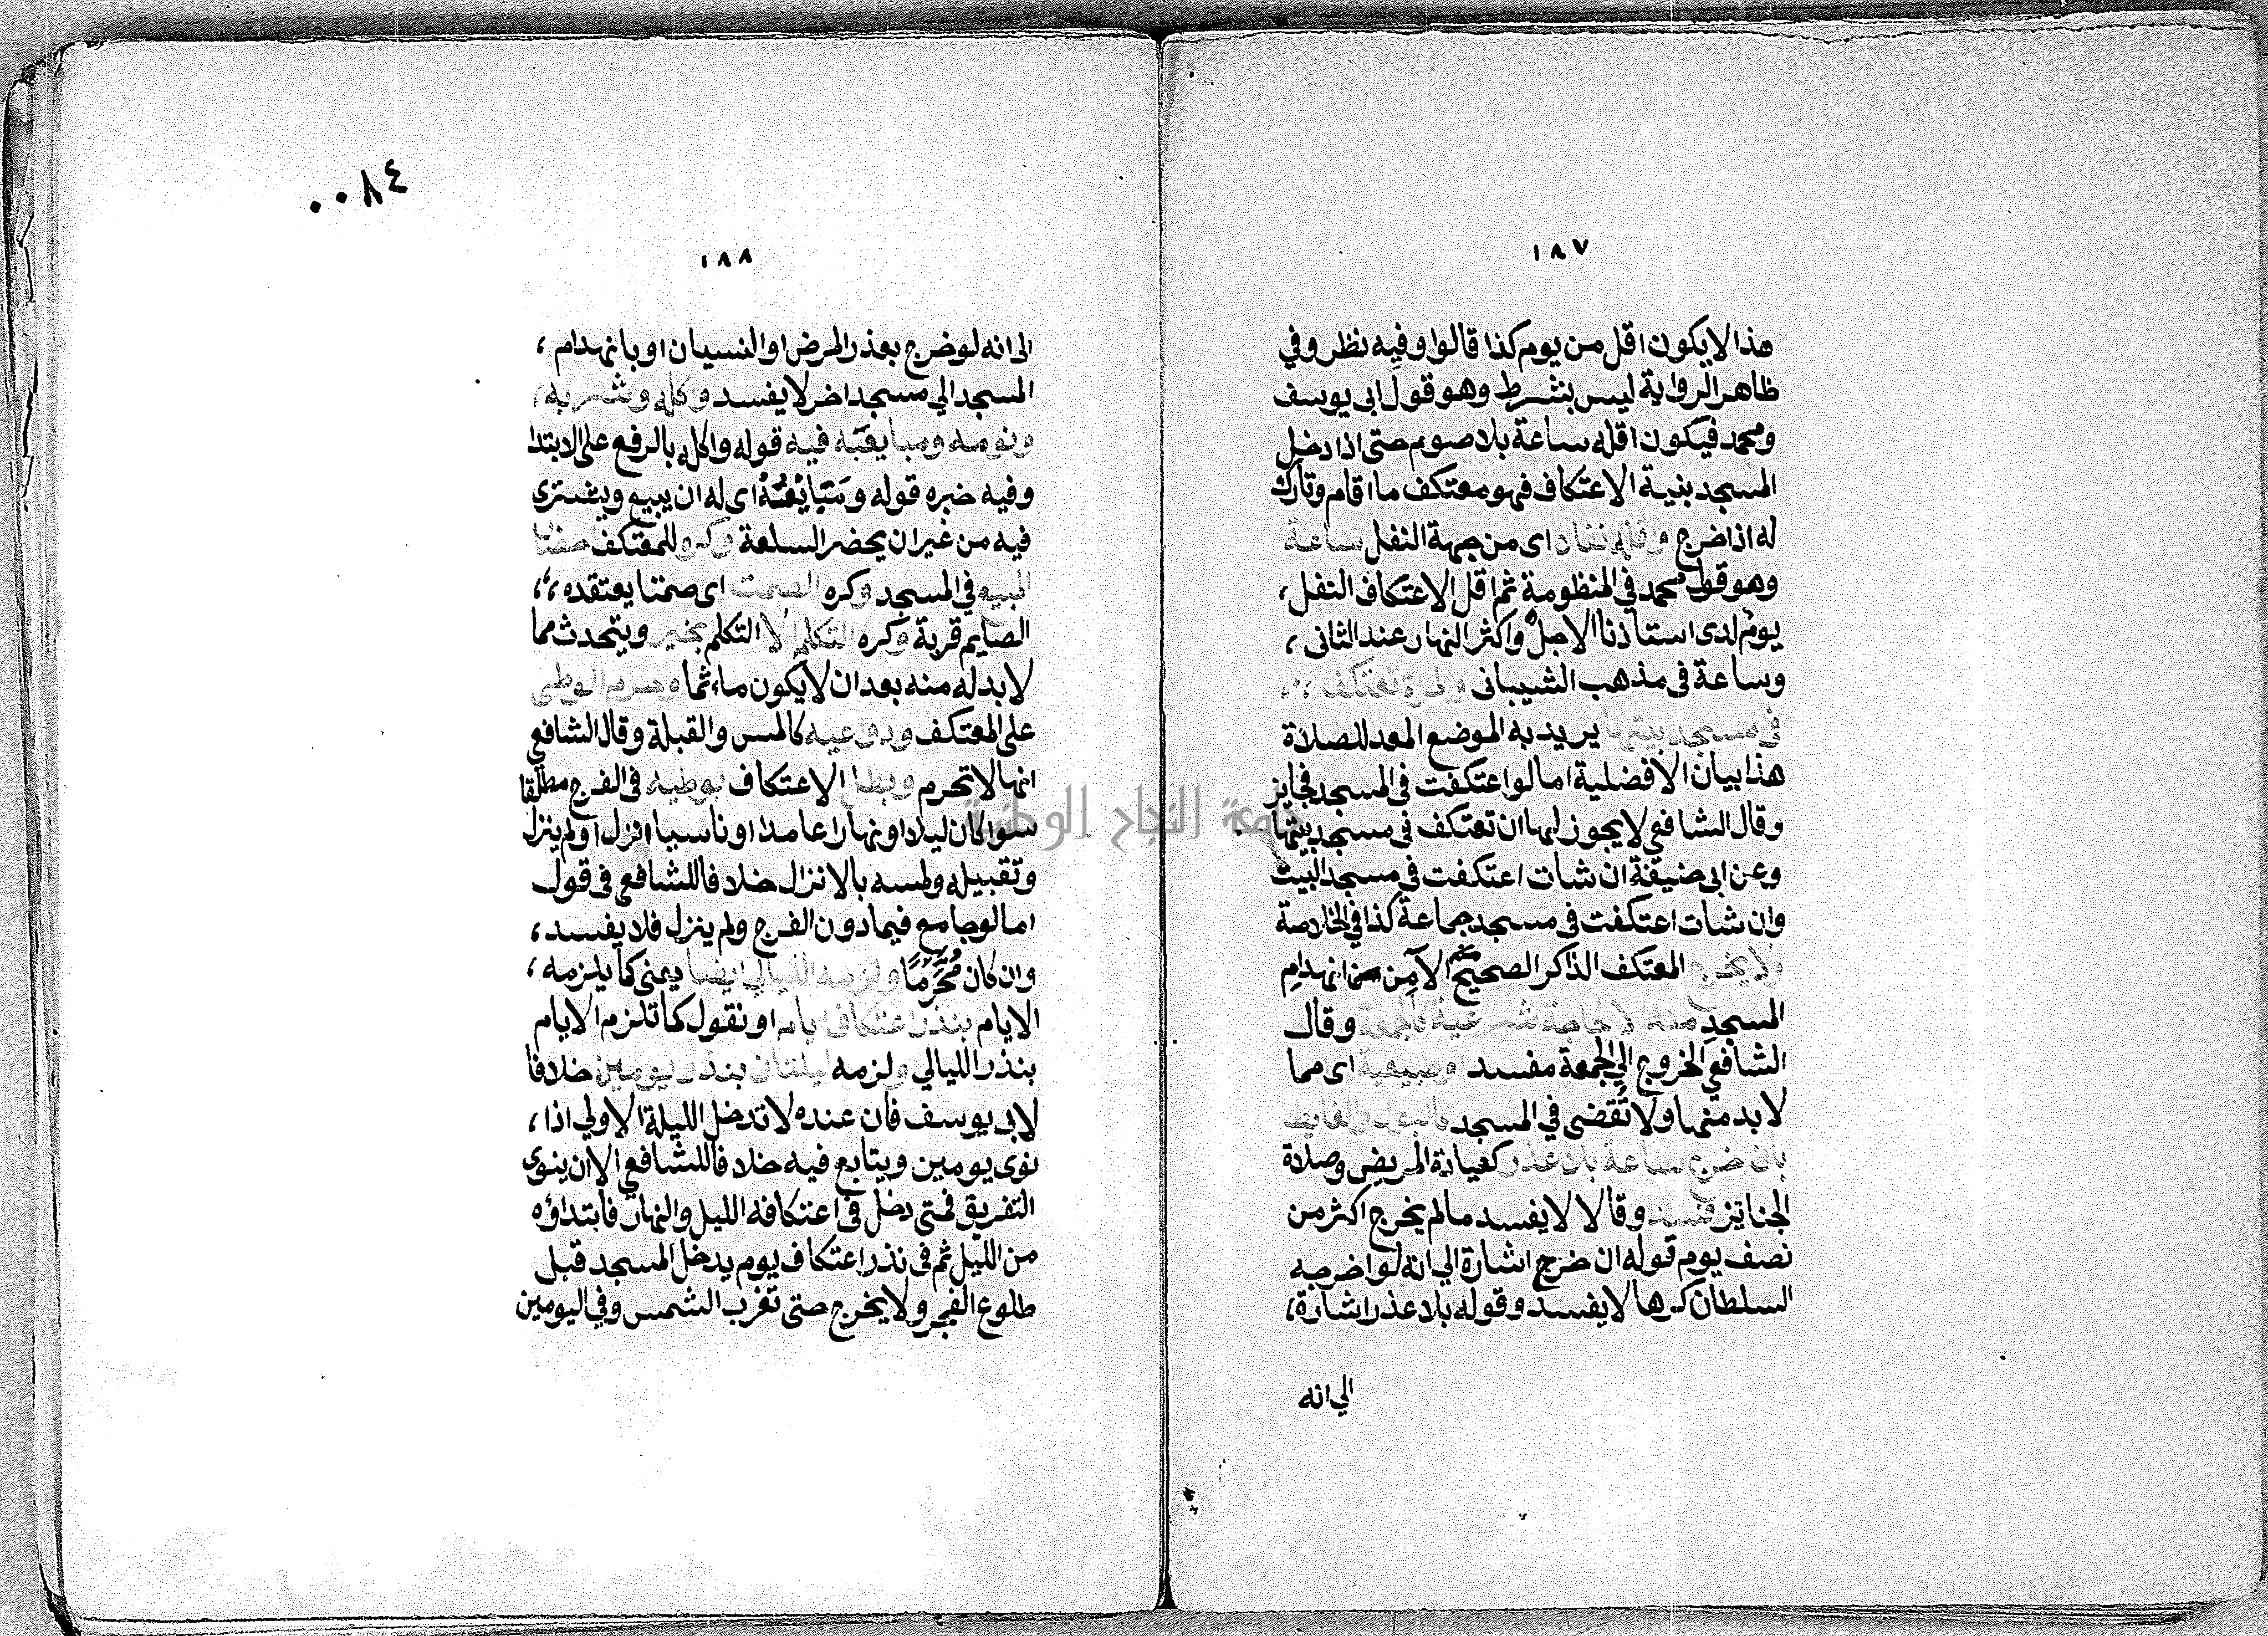 ١٨٧
هذا لا يكون اقل من يوم كذا قالوا وفيه نظر وفي
ظاهر الرواية ليس بشرط وهو قول ابى يوسف
ومحمد فيكون اقله ساعة بلا صوم حتى اذا دخل
المسجد بنية الاعتكاف فهو معتكف ما اقام وتارك
له اذا خرج واقله نفلا اى من جهة النفل ساعة
وهو قول محمد فى المنظومة ثم اقل الاعتكاف النفل،
يوم لدى استاذنا الاجل واكثر النهار عند الثانى،
وساعة فى مذهب الشيبانى والمراة تعتكف
فى مسجد بيتها يريد به الموضع المعد للصلاة
هذا بيان الافضلية اما لو اعتكفت فى المسجد فجايز
وقال الشافعي لا يجوز لها ان تعتكف فى مسجد بيتها
وعن ابى حنيفة ان شات اعتكفت في مسجد البيت
وان شات اعتكفت فى مسجد جماعة كذا في الخلاصة
ولا يخرج المعتكف الذاكر الصحيح الآمن من انهدام
المسجد منه الا لحاجة شرعية كالجمعة وقال
الشافعي الخروج الي الجمعة مفسد او طبيعية اى مما
لا بد منها ولا تُقضى في المسجد كالبول والغايط
بان خرج ساعة بلا عذر كعيادة المريض وصلاة
الجنايز فسد وقالا لا يفسد ما لم يخرج اكثر من
نصف يوم قوله ان خرج اشارة الي انه لو اخرجه
السلطان كرها لا يفسد وقوله بلا عذر اشارة،
الي انه
٠٠٨٤
١٨٨
الى انه لو خرج بعذر المرض او النسيان او بانهدام،
المسجد الي مسجد اخر لا يفسد وكله وشربه،
ونومه ومبايعته فيه قوله واكله بالرفع على الابتدا
وفيه خبره قوله ومُبَايَعَتُهُ اى له ان يبيع ويشترى
فيه من غير ان يحضر السلعة وكره للمعتكف حضار
المبيع في المسجد وكره الصمت اى صمتا يعتقده،،
الصايم قربة وكره التكلم الا التكلم بخير ويتحدث مما
لا بد له منه بعد ان لا يكون ماءثما وحرم الوطى
على المعتكف ودواعيه كالمس والقبلة وقال الشافعي
انها لا تحرم وبطل الاعتكاف بوطيه فى الفرج مطلقا
سوا كان ليلا او نهارا عامدا او ناسيا انزل او لم ينزل
وتقبيله ولمسه بالانزال خلافا للشافعي فى قول
اما لو جامع فيما دون الفرج ولم ينزل فلا يفسد،
وان كان مُحَرَّمًا ولزمه الليالي ايضا يعنى كما يلزمه،
الايام بنذر اعتكاف ايام او نقول كما تلزم الايام
بنذر الليالي ولزمه ليلتان بنذر يومين خلافا
لابى يوسف فان عنده لا تدخل الليلة الاولي اذا،
نوى يومين ويتابع فيه خلافا للشافعي الا ان ينوى
التفريق فمتى دخل فى اعتكافه الليل والنهار فابتداؤه
من الليل ثم فى نذر اعتكاف يوم يدخل المسجد قبل
طلوع الفجر ولا يخرج حتى تغرب الشمس وفي اليومين
جامعة النجاح الوطنية